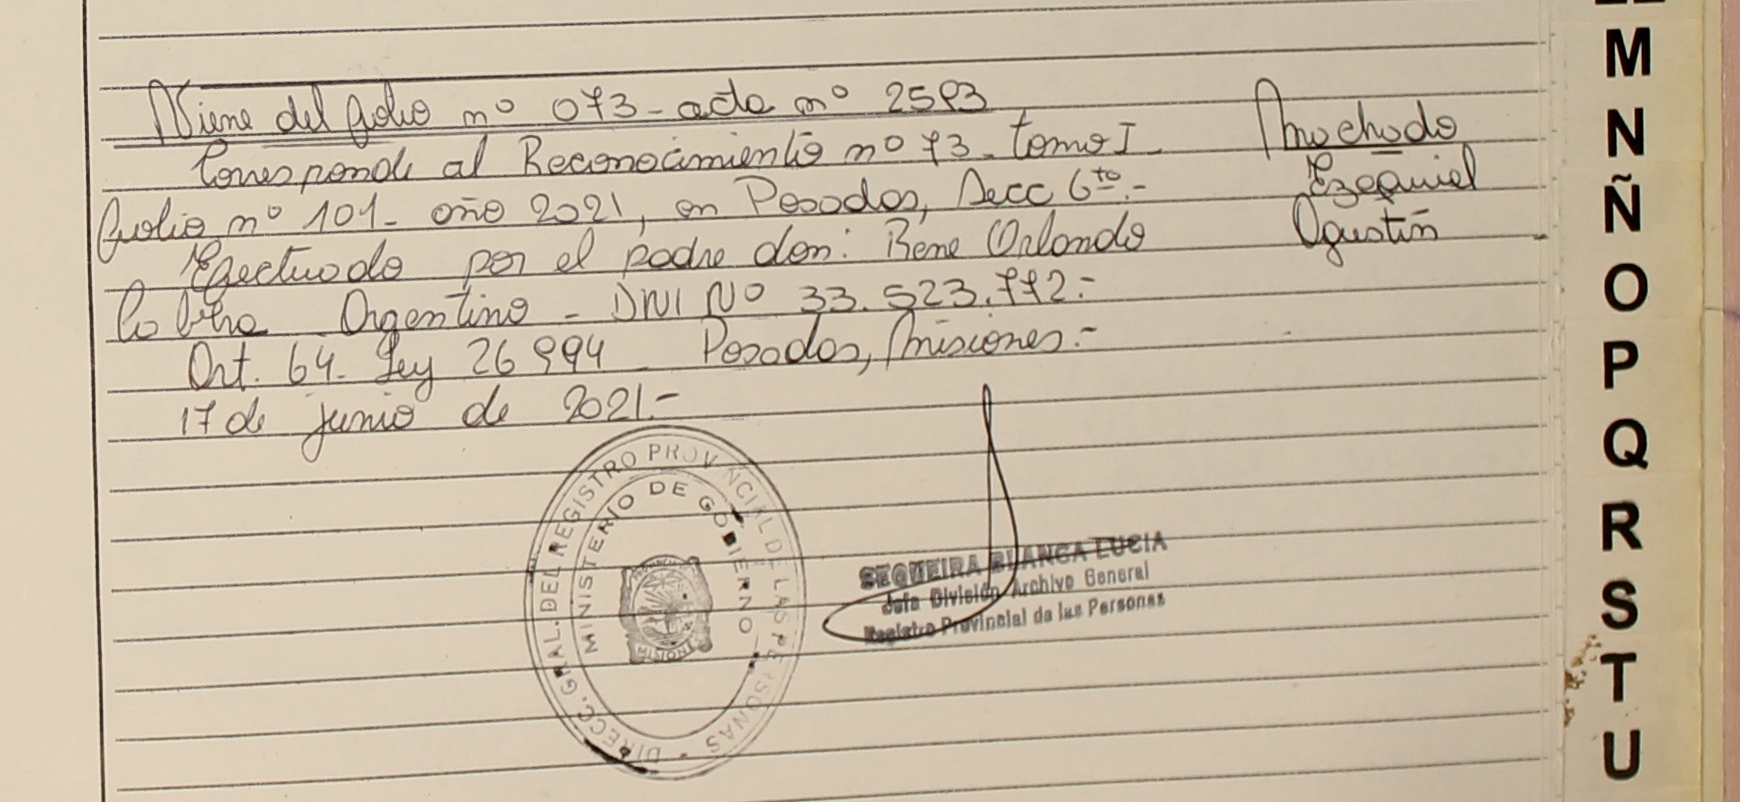 Viene del folio nº 073 - acta nº 2593
Corresponde al Reconocimiento nº 73 - tomo I
folio nº 101 - año 2021, en Posadas, Secc 6ta.-
Efectuado por el padre don: Rene Orlando
Argentino - DNI Nº 33.523.772.-
Art. 64. Ley 26994 Posadas, Misiones.-
17 de junio de 2021.-
Machado
Ezequiel
Agustín
DIRECC. GRAL. DEL REGISTRO PROVINCIAL DE LAS PERSONAS
MINISTERIO DE GOBIERNO
MISIONES
SEQUEIRA BLANCA LUCIA
Jefa División Archivo General
Registro Provincial de las Personas
M
N
Ñ
O
P
Q
R
S
T
U